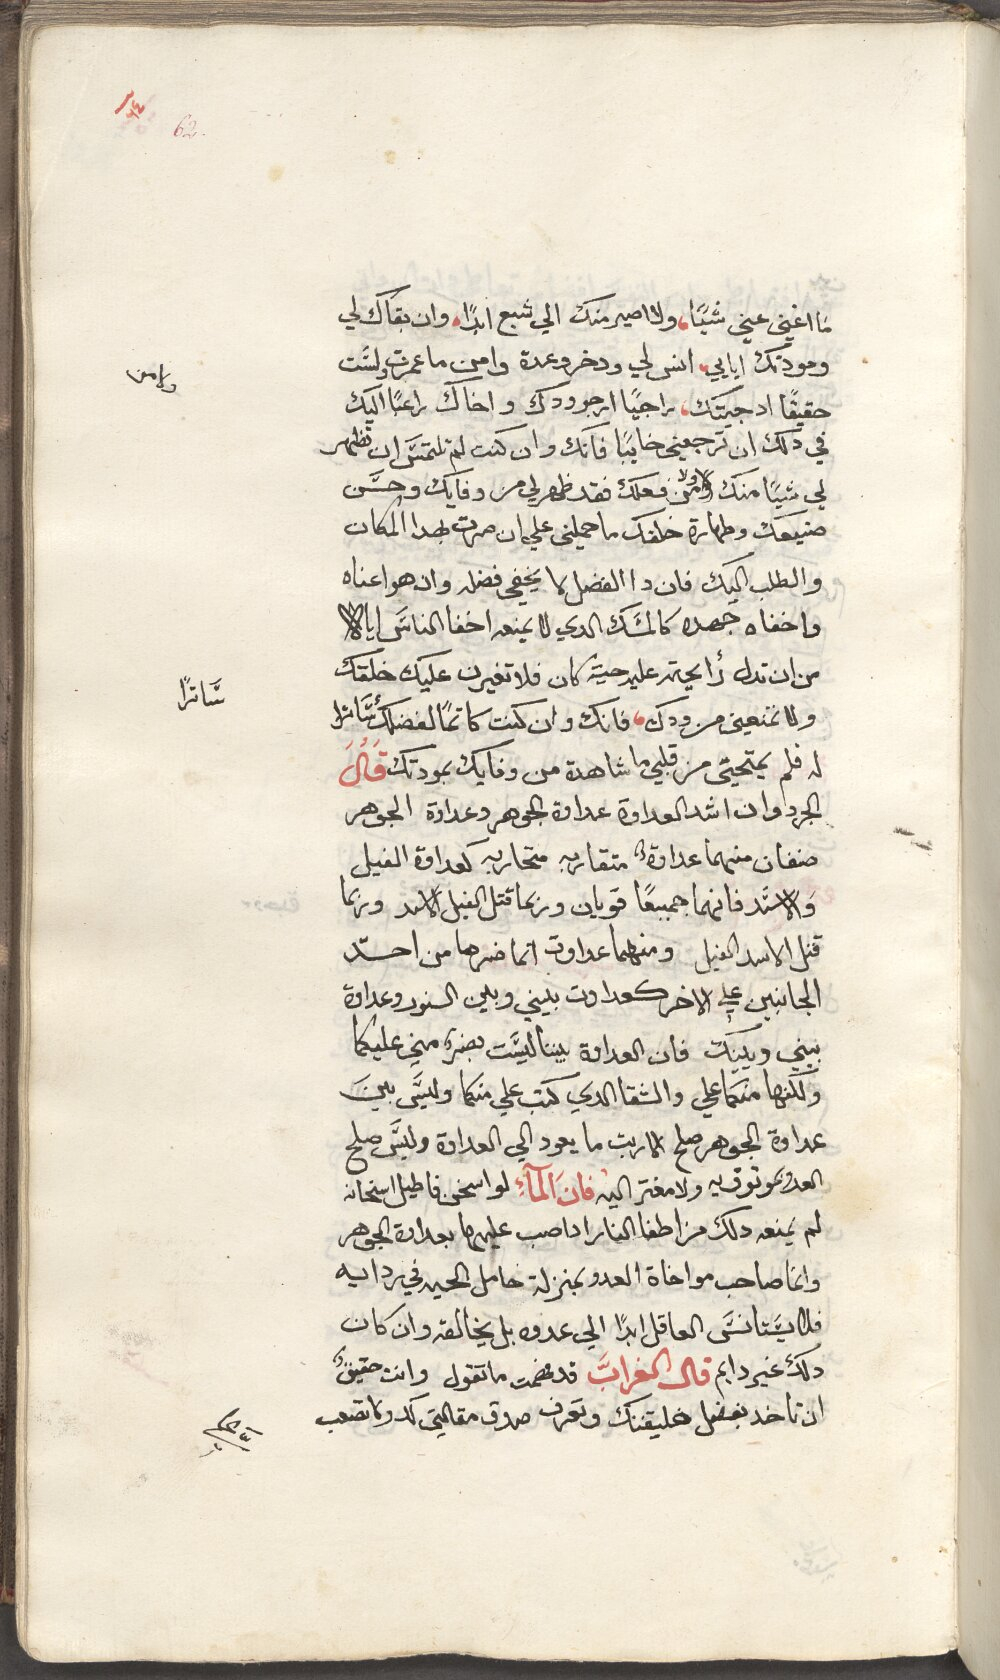 62
ما اغني عني شيًا، ولا اصير منك الي شبع ابدًا، وان بقاك لي
ومودتك اياي، انس لي ودخر وعدة وامن ما عمرت ولست
ولا من
حقيقًا اد جيتك، راجيًا ارجو ودك واخاك راغبًا اليك
في دلك ان ترجعني خايبًا فانك وان كنت لم تلتمس ان تظهر
لي شيًا منك ولا من فعلك فقد ظهر لي من وفايك وحسن
صنيعك وطهارة خلقك ما حملني علي ان صرت لهدا المكان
والطلب اليك فان دا الفضل لا يخفي فضله وان هو اعناه
واخفاه جهده كالمسك الدي لا يمنعه اخفا الناس اياه
من ان تدل رايحته عليه حيث كان فلا تغيرن عليك خلقك
ولا تمنعني من ودك، فانك وان كنت كاتمًا لفضلك ساترا
ساترًا
له فلم يمتحي من قلبي ما شاهدة من وفايك بمودتك قال
الجرد وان اشد العداوة عداوة الجوهر وعداوة الجوهر
صنفان منهما عداوة متقاربه متحاربه كعداوة الفيل
والاسد فانهما جميعًا قويان وربما قتل الفيل الاسد وربما
قتل الاسد الفيل ومنهما عداوت انما ضرها من احد
الجانبين علي الاخر كعداوت بيني وبين السنور وعداوة
بيني وبينك فان العداوة بيننا ليست بضرة مني عليكما
ولكنها منكما علي والشقا الدي كتب علي منكما وليس بين
عداوة الجوهر صلح الا ريث ما يعود الي العداوة وليس صلح
العدو بموتوق به ولا مغتر اليه فان المآء لو اسخن فاطيل اسخانه
لم يمنعه دلك من اطفا النار ادا صب عليها بعداوة الجوهر
وانما صاحب مواخاة العدو بمنزلة حامل الحيه في ردايه
فلا يستانس العاقل ابدًا الي عدوه بل يخالفه وان كان
دلك غير دايم قال الغراب قد فهمت ما تقول وانت حقيق
ان تاخد بفضل خليقتك وتعرف صدق مقالتي لك ولا تصعب